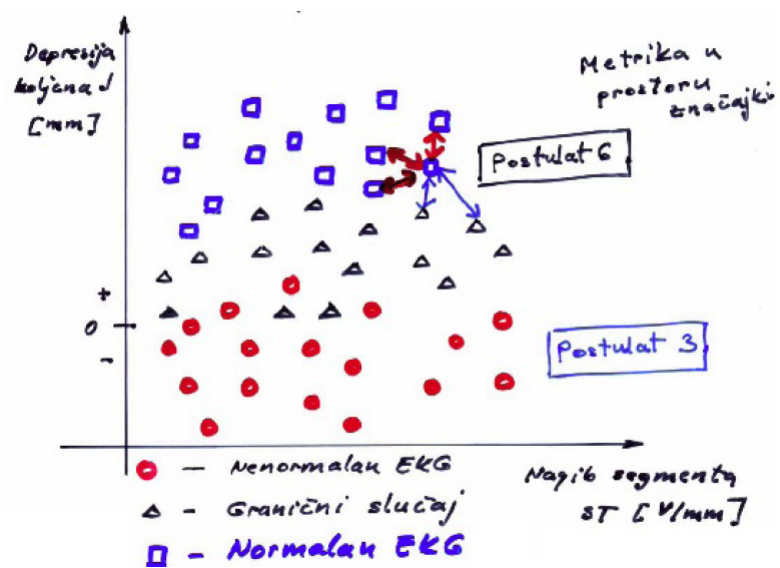 Depresija
koljena J
[mm]
Metrika u
prostoru
značajki
Postulat 6
+
0
-
Postulat 3
- Nenormalan EKG
- Granični slučaj
- Normalan EKG
Nagib segmenta
ST [V/mm]